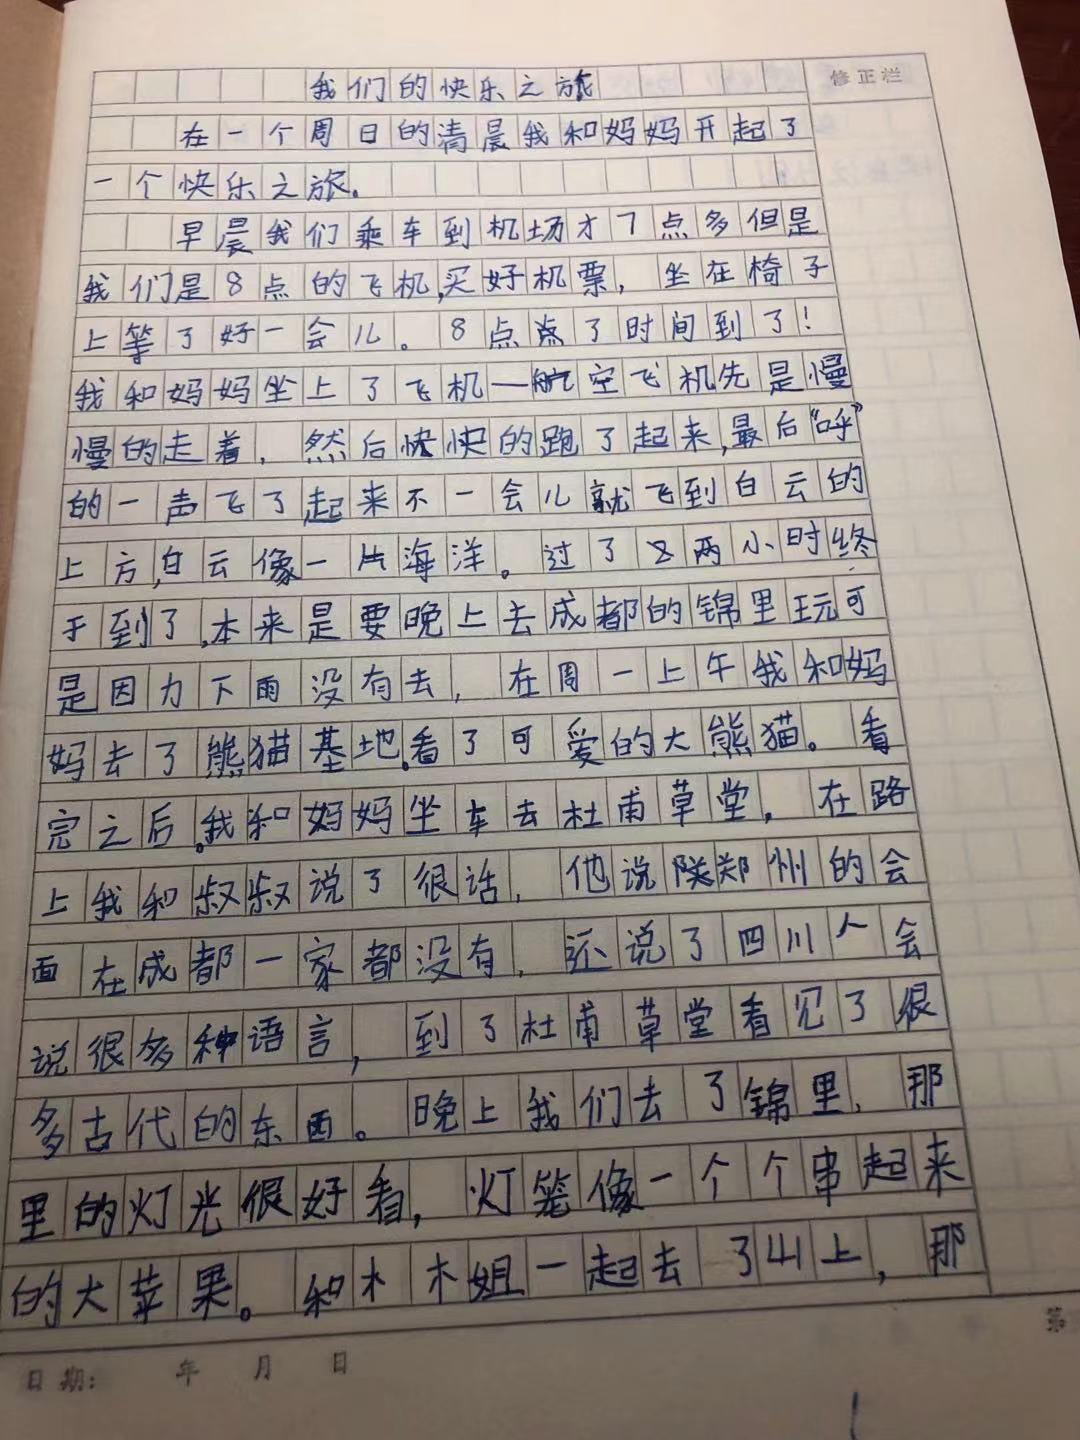 我们的快乐之旅
修正栏
在一个周日的清晨我和妈妈开起了
一个快乐之旅。
早晨我们乘车到机场才7点多但是
我们是8点的飞机,买好机票，坐在椅子
上等了好一会儿。8点点了时间到了！
我和妈妈坐上了飞机一航空飞机先是慢
慢的走着，然后快快的跑了起来,最后“呼”
的一声飞了起来不一会儿就飞到白云的
上方,白云像一片海洋。过了两小时终
于到了,本来是要晚上去成都的锦里玩可
是因力下雨没有去，在周一上午我和妈
妈去了熊猫基地,看了可爱的大熊猫。看
完之后,我和妈妈坐车去杜甫草堂，在路
上我和叔叔说了很话，他说郑州的会
面在成都一家都没有，还说了四川人会
说很多种语言，到了杜甫草堂看见了很
多古代的东西。晚上我们去了锦里，那
里的灯光很好看，灯笼像一个个串起来
的大苹果。和木木姐一起去了山上，那
日期： 年 月 日
第